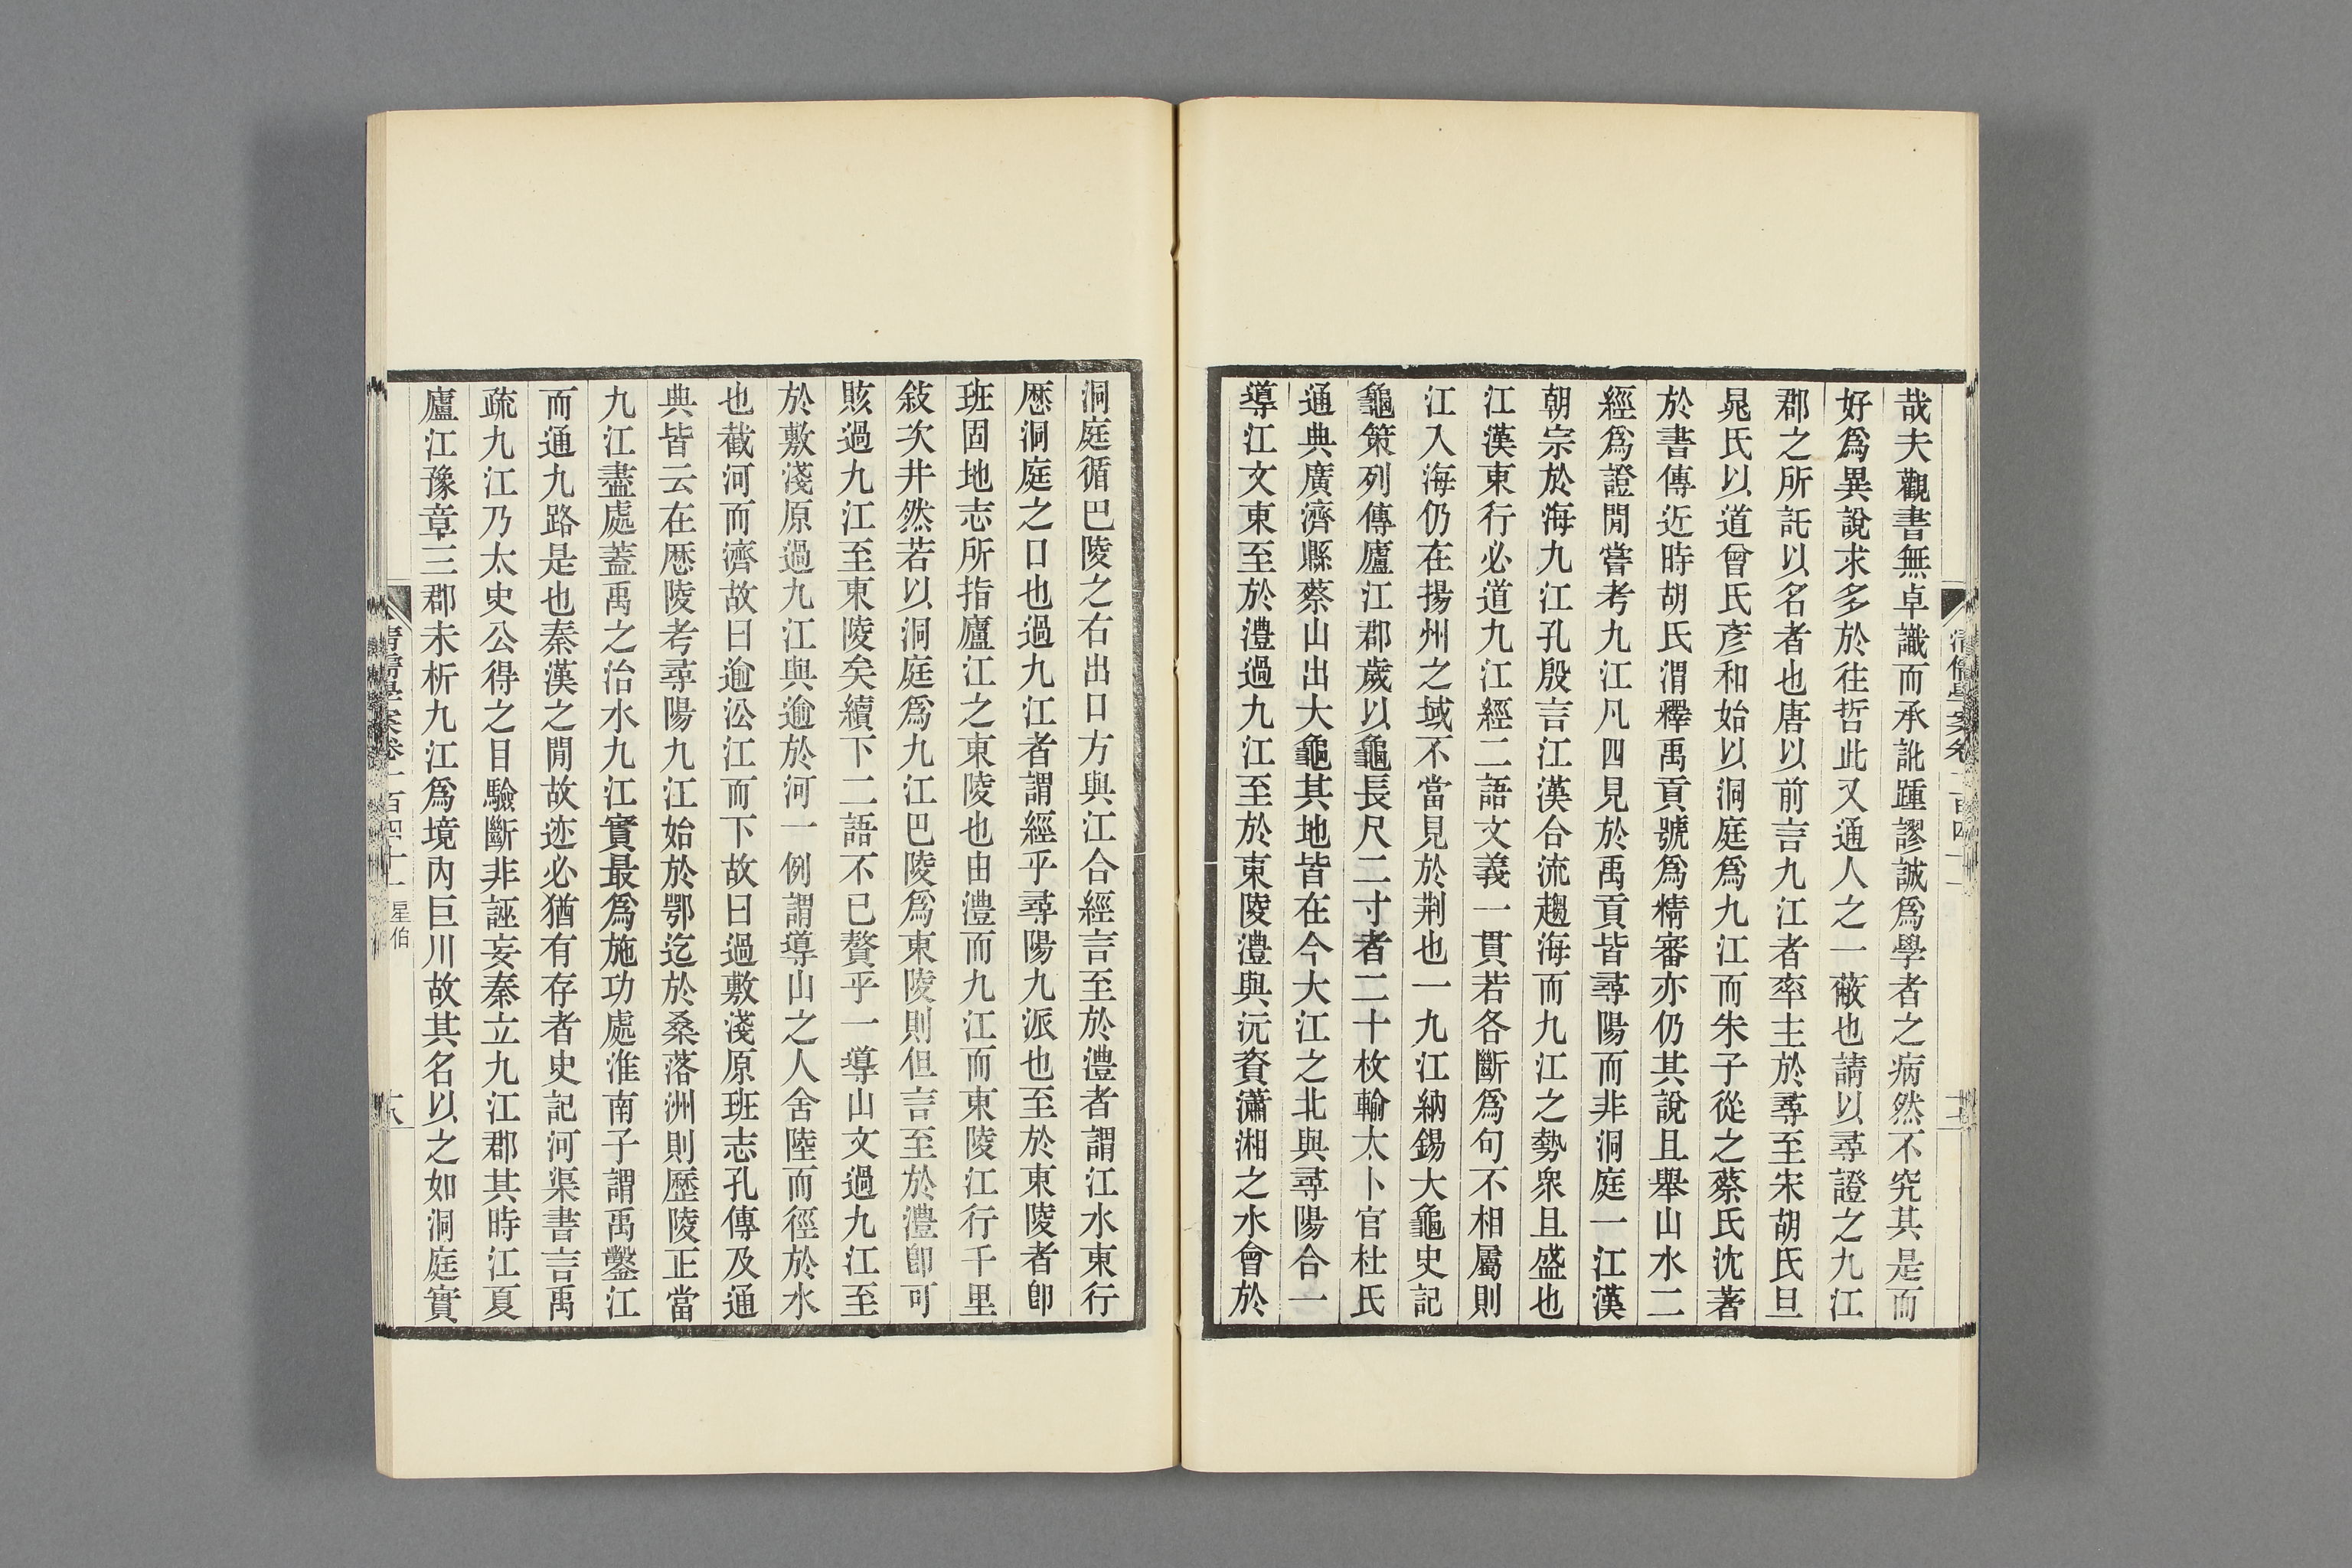 哉夫觀書無卓識而承訛踵謬誠爲學者之病然不究其是而
好爲異說求多於往哲此又通人之一蔽也請以尋證之九江
郡之所託以名者也唐以前言九江者率主於尋至宋胡氏旦
晁氏以道曾氏彥和始以洞庭爲九江而朱子從之蔡氏沈著
於書傳近時胡氏渭釋禹貢號爲精審亦仍其說且舉山水二
經爲證閒嘗考九江凡四見於禹貢皆尋陽而非洞庭一江漢
朝宗於海九江孔殷言江漢合流趨海而九江之勢衆且盛也
江漢東行必道九江經二語文義一貫若各斷爲句不相屬則
江入海仍在揚州之域不當見於荆也一九江納錫大龜史記
龜策列傳廬江郡歲以龜長尺二寸者二十枚輸太卜官杜氏
通典廣濟縣蔡山出大龜其地皆在今大江之北與尋陽合一
導江文東至於澧過九江至於東陵澧與沅資瀟湘之水會於
洞庭循巴陵之右出口方與江合經言至於澧者謂江水東行
厯洞庭之口也過九江者謂經乎尋陽九派也至於東陵者卽
班固地志所指廬江之東陵也由澧而九江而東陵江行千里
敍次井然若以洞庭爲九江巴陵爲東陵則但言至於澧卽可
賅過九江至東陵矣續下二語不已贅乎一導山文過九江至
於敷淺原過九江與逾於河一例謂導山之人舍陸而徑於水
也截河而濟故曰逾沿江而下故曰過敷淺原班志孔傳及通
典皆云在厯陵考尋陽九江始於鄂迄於桑落洲則歷陵正當
九江盡處蓋禹之治水九江實最爲施功處淮南子謂禹鑿江
而通九路是也秦漢之閒故迹必猶有存者史記河渠書言禹
疏九江乃太史公得之目驗斷非誣妄秦立九江郡其時江夏
廬江豫章三郡未析九江爲境內巨川故其名以之如洞庭實
清儒學案卷一百四十一 星伯